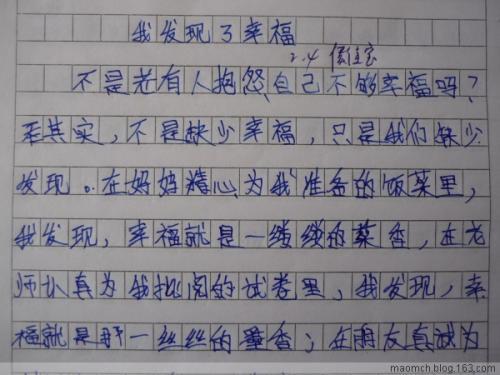 我发现了幸福
2.4
不是老有人抱怨自己不够幸福吗？
若其实，不是缺少幸福，只是我们缺少
发现。在妈妈精心为我准备的饭菜里，
我发现，幸福就是一缕缕的菜香，在老
师认真为我批阅的试卷里，我发现，幸
福就是那一丝丝的墨香；在朋友真诚为
maomch.blog.163.com